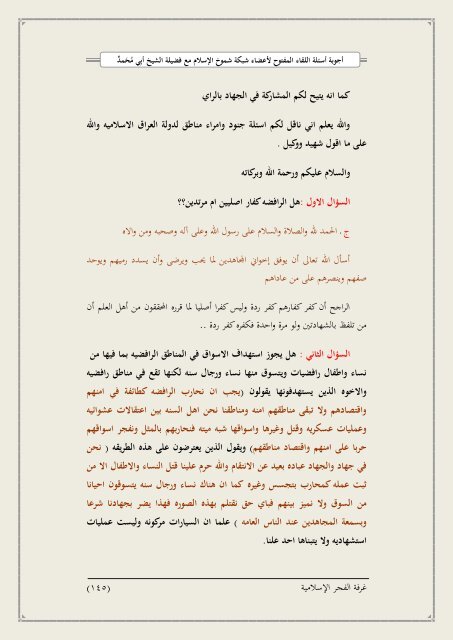 أجوبة أسئلة اللقاء المفتوح لأعضاء شبكة شموخ الإسلام مع فضيلة الشيخ أبي مُحَمدٌ
كما انه يتيح لكم المشاركة في الجهاد بالراي
والله يعلم اني ناقل لكم اسئلة جنود وامراء مناطق لدولة العراق الاسلاميه والله
على ما اقول شهيد ووكيل .
والسلام عليكم ورحمة الله وبركاته
السؤال الاول :هل الرافضه كفار اصليين ام مرتدين؟؟
ج . الحمد لله والصلاة والسلام على رسول الله وعلى آله وصحبه ومن والاه
أسأل الله تعالى أن يوفق إخواني المجاهدين لما يحب ويرضى وأن يسدد رميهم ويوحد
صفهم وينصرهم على من عاداهم
الراجح أن كفر كفارهم كفر ردة وليس كفرا أصليا لما قرره المحققون من أهل العلم أن
من تلفظ بالشهادتين ولو مرة واحدة فكفره كفر ردة ..
السؤال الثاني : هل يجوز استهداف الاسواق في المناطق الرافضيه بما فيها من
نساء واطفال رافضيات ويتسوق منها نساء ورجال سنه لكنها تقع في مناطق رافضيه
والاخوه الذين يستهدفونها يقولون (يجب ان نحارب الرافضه كطائفة في امنهم
واقتصادهم ولا تبقى مناطقهم امنه ومناطقنا نحن اهل السنه بين اعتقالات عشوائيه
وعمليات عسكريه وقتل وغيرها واسواقها شبه ميته فنحاربهم بالمثل ونفجر اسواقهم
حربا على امنهم واقتصاد مناطقهم) ويقول الذين يعترضون على هذه الطريقه ( نحن
في جهاد والجهاد عباده بعيد عن الانتقام والله حرم علينا قتل النساء والاطفال الا من
ثبت عمله كمحارب بتجسس وغيره كما ان هناك نساء ورجال سنه يتسوقون احيانا
من السوق ولا نميز بينهم فباي حق نقتلهم بهذه الصوره فهذا يضر بجهادنا شرعا
وبسمعة المجاهدين عند الناس العامه ) علما ان السيارات مركونه وليست عمليات
استشهاديه ولا يتبناها احد علنا.
غرفة الفجر الإسلامية (١٤٥)